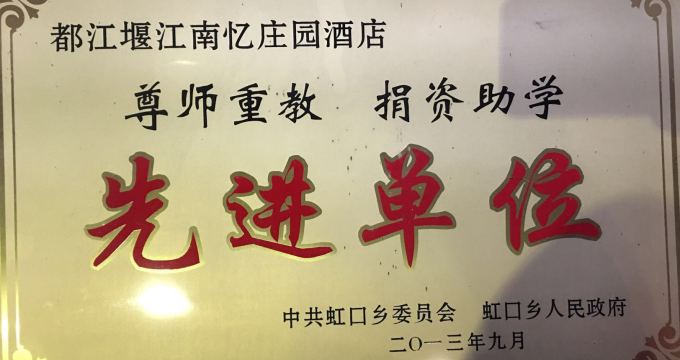 都江堰江南忆庄园酒店
尊师重教 捐资助学
先进单位
中共虹口乡委员会 虹口乡人民政府
二〇一三年九月